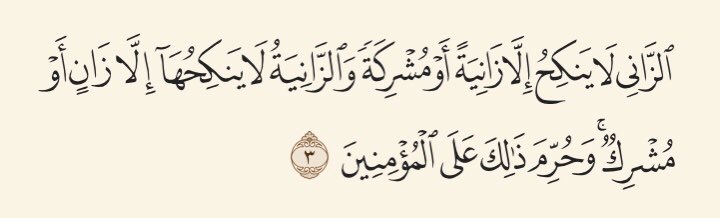 ٱلزَّانِى لَا يَنكِحُ إِلَّا زَانِيَةً أَوْ مُشْرِكَةً وَٱلزَّانِيَةُ لَا يَنكِحُهَآ إِلَّا زَانٍ أَوْ
مُشْرِكٌۭ ۚ وَحُرِّمَ ذَٰلِكَ عَلَى ٱلْمُؤْمِنِينَ ٣